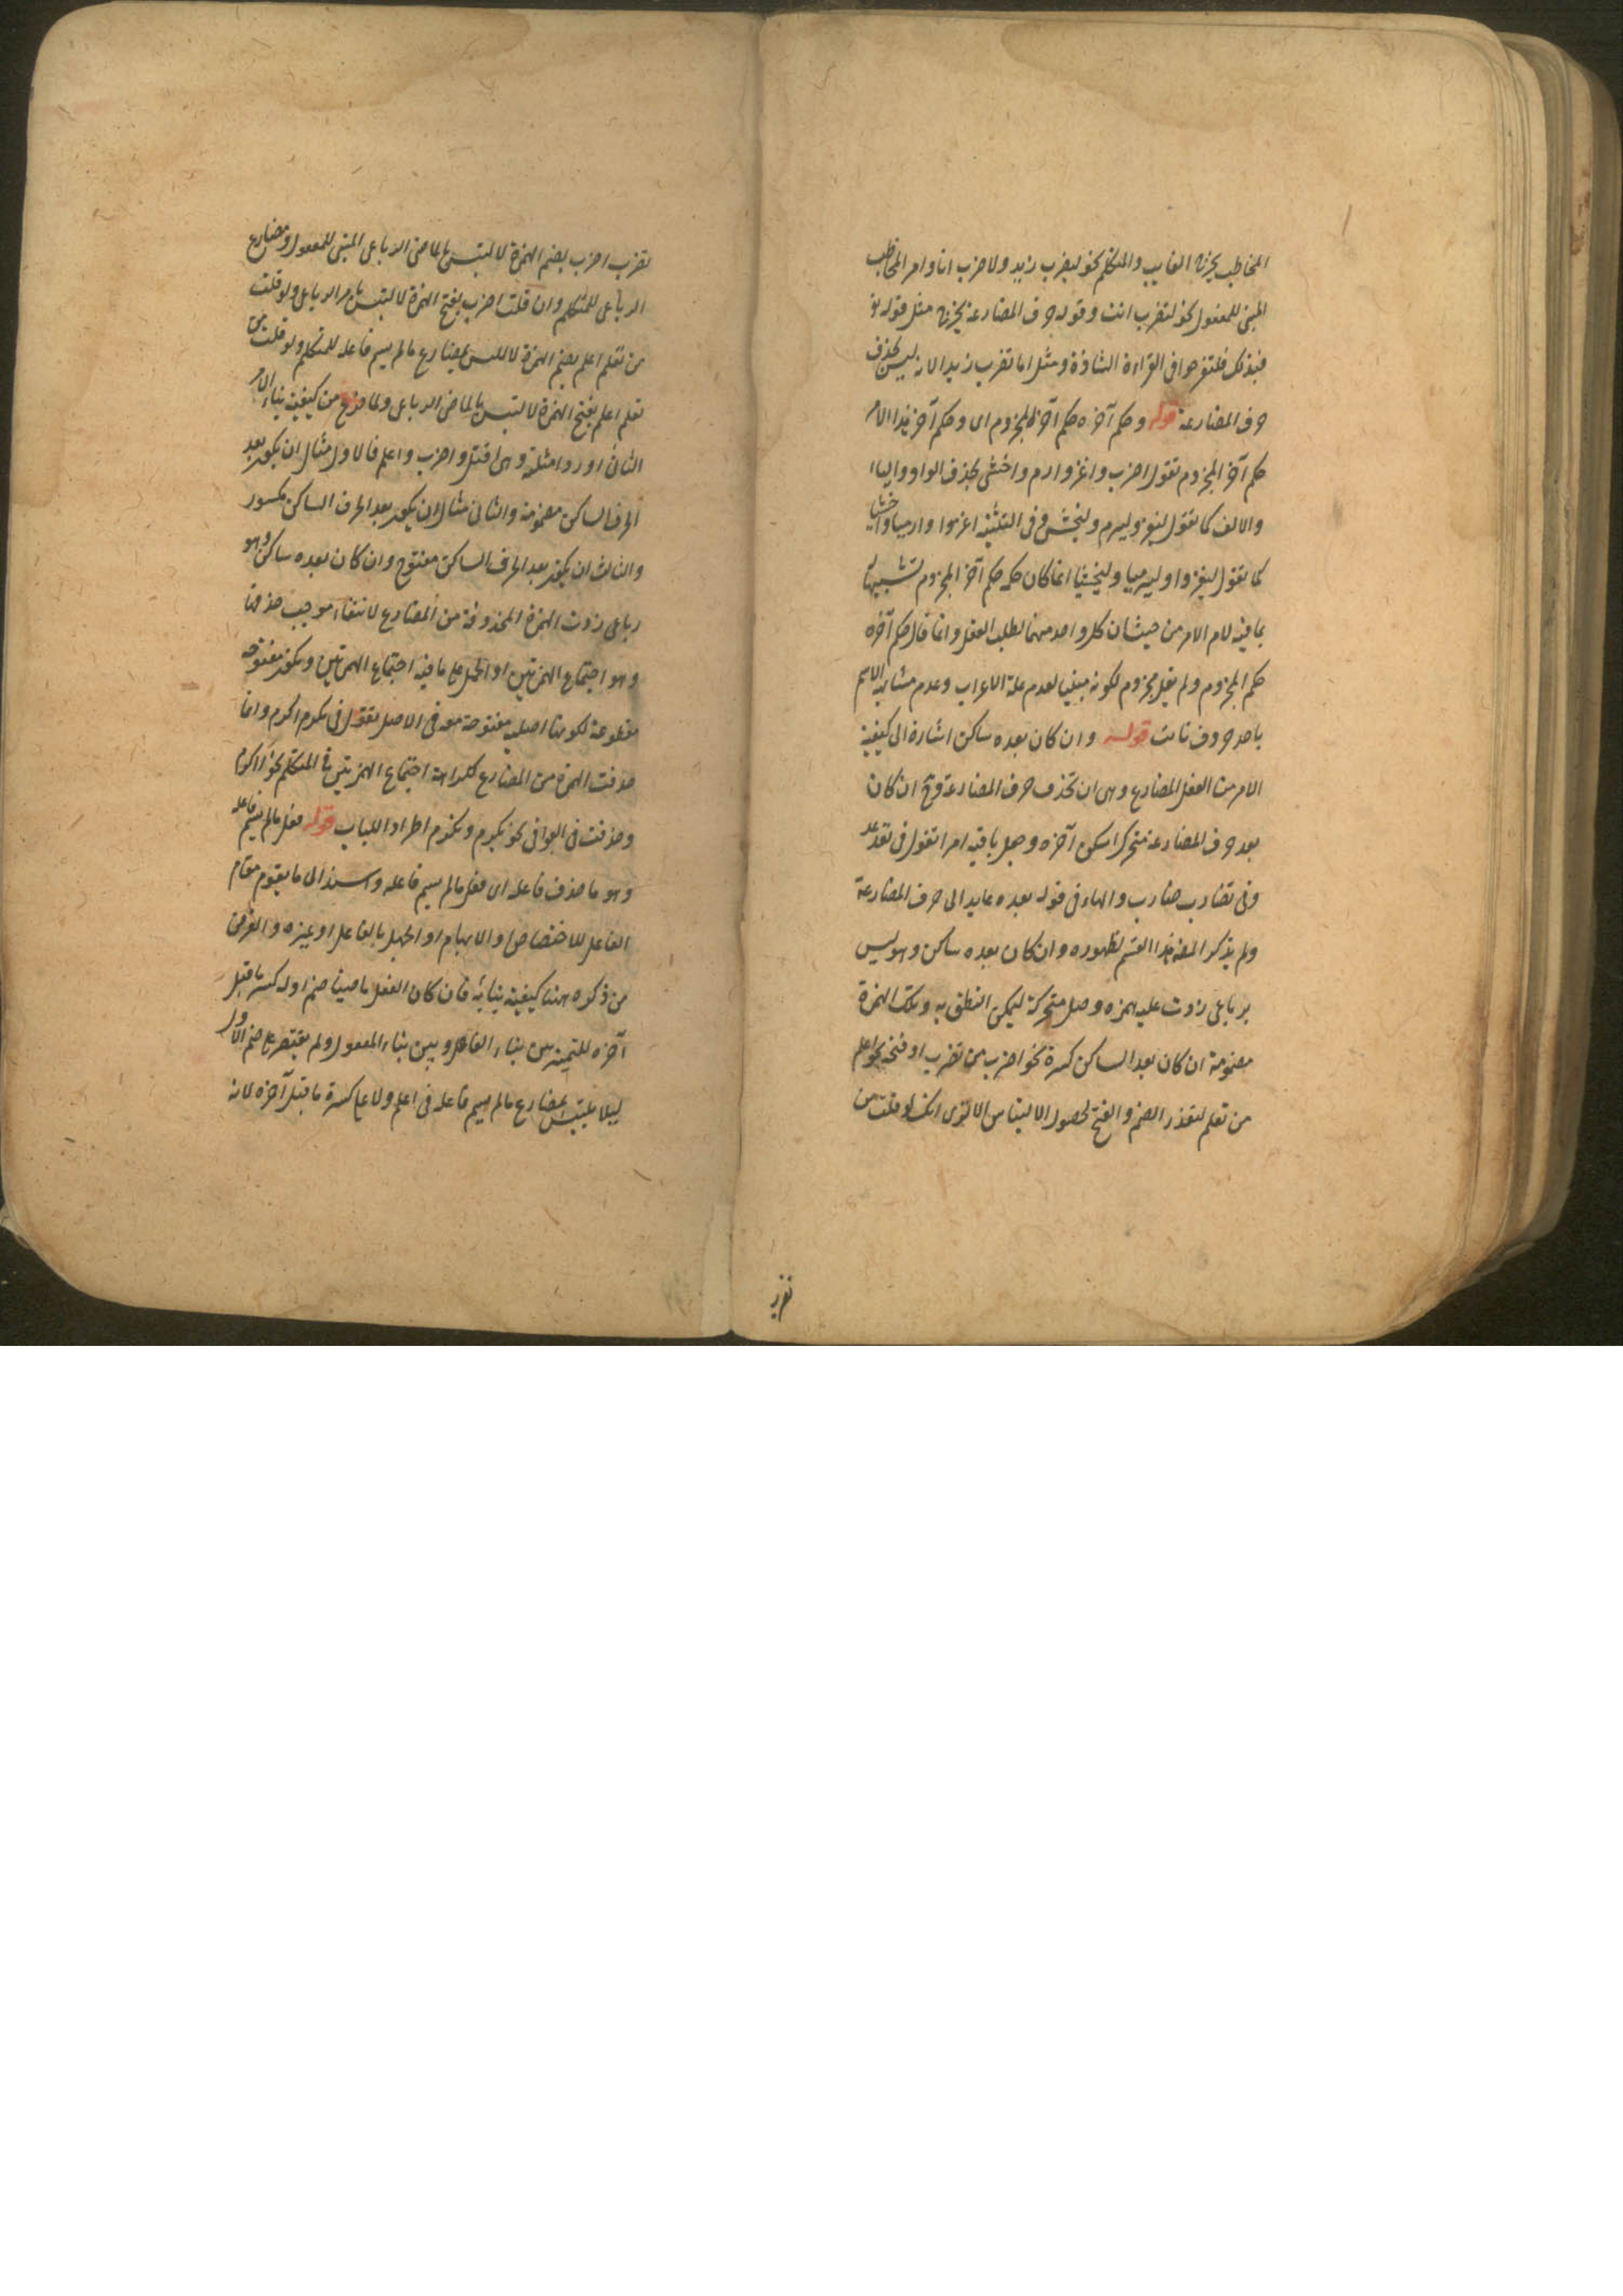 المخاطب يخرج الغايب والمتكلم نحو ليضرب زيد ولاضرب انا وامر المخاطب
المبني للمفعول نحو لتضرب انت وقوله حرف المضارعة يخرج مثل قوله تع
فبذلك فلتفرحوا في القراءة الشاذة ومثل اما تضرب زيدا لانه ليس بحذف
حرف المضارعة قوله وحكم آخره حكم آخر المجزوم اى وحكم آخر هذا الامر
حكم آخر المجزوم تقول اضرب واغز وارم واخش بحذف الواو والياء
والالف كما تقول ليغز وليرم وليخش وفى التثنية اغزوا وارميا واخشيا
كما تقول ليغزوا وليرميا وليخشيا انما كان حكمه حكم آخر المجزوم تشبيها
بما فيه لام الامر من حيث ان كل واحد منهما لطلب الفعل وانما قال حكم آخره
حكم المجزوم ولم يقل مجزوم لكونه مبنيا لعدم علة الاعراب وعدم مشابهة الاسم
باحد حروف نأيت قوله وان كان بعده ساكن اشارة الى كيفية
الامر من الفعل المضارع وهى ان تحذف حرف المضارعة وح ان كان
بعد حرف المضارعة متحركا اسكن آخره وجعل باقيه امرا تقول فى تعد عد
وفى تضارب ضارب والهاء فى قوله بعده عايد الى حرف المضارعة
ولم يذكر المص هذا القسم لظهوره وان كان بعده ساكن وهو ليس
برباعى زدت عليه همزه وصل متحركة ليمكن النطق به وتلك الهمزة
مضمومة ان كان بعد الساكن كسرة نحو اضرب من تضرب او فتحة نحو اعلم
من تعلم لتعذر الضم والفتح لحصول الالتباس الا ترى انك لو قلت من
تضرب
تضرب اضرب بضم الهمزة لالتبس بالماضى الرباعى المبنى للمفعول ومضارع
الرباعى للمتكلم وان قلت اضرب بفتح الهمزة لالتبس بامر الرباعى ولو قلت
من تعلم اعلم بضم الهمزة لالتبس بمضارع ما لم يسم فاعله للمتكلم ولو قلت من
تعلم اعلم بفتح الهمزة لالتبس بالماضى الرباعى ولما فرغ من كيفية بناء الامر
الثانى اورد امثلة وهى اقتل واضرب واعلم فالاول مثال ان يكون بعد
الحرف الساكن مضمومة والثانى مثال ان يكون بعد الحرف الساكن مكسور
والثالث ان يكون بعد الحرف الساكن مفتوح وان كان بعده ساكن وهو
رباعى زدت الهمزة المحذوفة من المضارع لانتفاء موجب حذفها
وهو اجتماع الهمزتين او الحمل على ما فيه اجتماع الهمزتين ويكون مفتوحة
مقطوعة لكونها اصلية مفتوحة معه فى الاصل تقول فى تكرم اكرم وانما
حذفت الهمزة من المضارع لكراهة اجتماع الهمزتين فى المتكلم نحو أأكرم
وحذفت فى البواقى نحو يكرم وتكرم اطرادا للباب قوله فعل ما لم يسم فاعله
وهو ما حذف فاعله اى فعل ما لم يسم فاعله واسند الى ما يقوم مقام
الفاعل للاختصاص او الابهام او الجهل بالفاعل او غيره والغرض
من ذكره ههنا كيفية بنائه فان كان الفعل ماضيا ضم اوله كسر ما قبل
آخره للتمييز بين بناء الفاعل وبين بناء المفعول ولم يقتصر على ضم الاول
ليلا يلتبس بمضارع ما لم يسم فاعله فى اعلم ولا على كسرة ما قبل آخره لانه